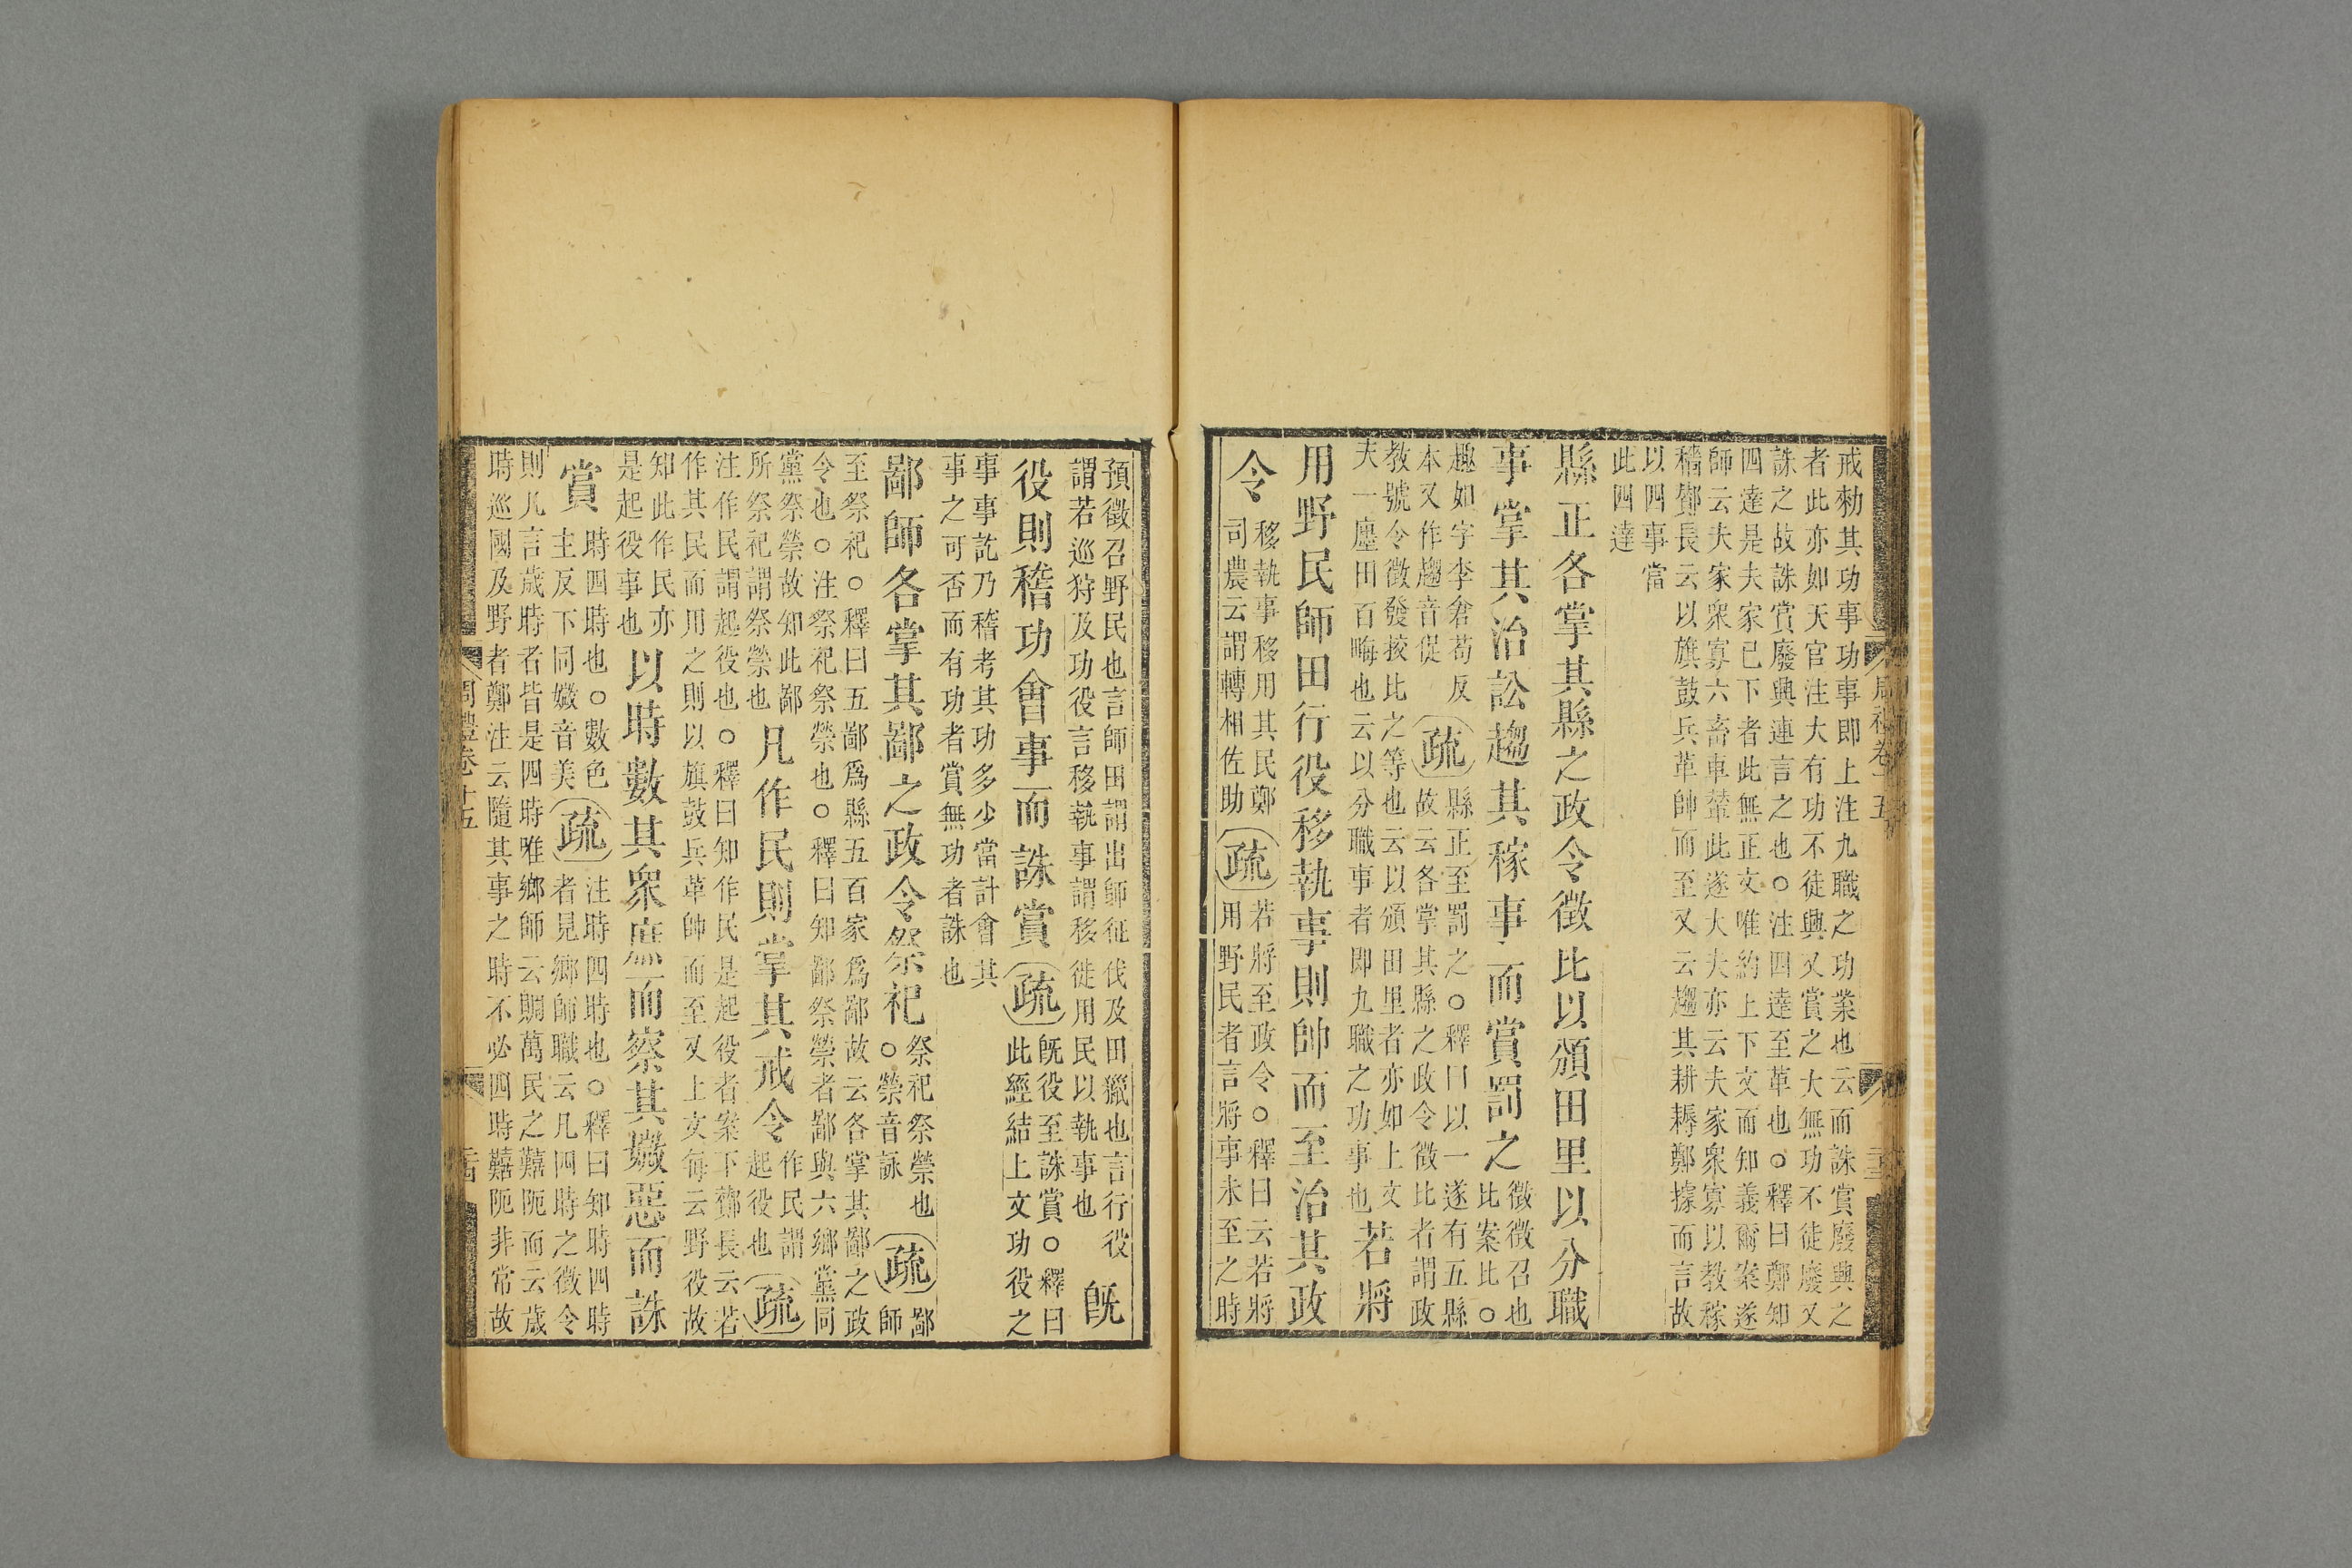 戒勑其功事功事即上注九職之功業也云而誅賞廢興之
者此亦如天官注大有功不徒興又賞之大無功不徒廢又
誅之故誅賞廢興連言之也○注四達至革也○釋曰鄭知
四達是夫家已下者此無正文唯約上下文而知義爾案遂
師云夫家衆寡六畜車輦此遂大夫亦云夫家衆寡以教稼
穡鄼長云以旗鼓兵革帥而至又云趨其耕耨鄭據而言故
以四事當
此四達
縣正各掌其縣之政令徵比以頒田里以分職
事掌其治訟趨其稼事而賞罰之
徵徵召也
比案比○
趣如字李倉苟反
本又作趨音促
疏
縣正至罰之○釋曰以一遂有五縣
故云各掌其縣之政令徵比者謂政
教號令徵發挍比之等也云以頒田里者亦如上文
夫一廛田百畮也云以分職事者即九職之功事也
若將
用野民師田行役移執事則帥而至治其政
令
移執事移用其民鄭
司農云謂轉相佐助
疏
若將至政令○釋曰云若將
用野民者言將事未至之時
預徵召野民也言師田謂出師征伐及田獵也言行役
謂若巡狩及功役言移執事謂移徙用民以執事也
旣
役則稽功會事而誅賞
疏
旣役至誅賞○釋曰
此經結上文功役之
事事訖乃稽考其功多少當計會其
事之可否而有功者賞無功者誅也
鄙師各掌其鄙之政令祭祀
祭祀祭禜也
○禜音詠
疏
鄙
師
至祭祀○釋曰五鄙爲縣五百家爲鄙故云各掌其鄙之政
令也○注祭祀祭禜也○釋曰知鄙祭禜者鄙與六鄉黨同
黨祭禜故知此鄙
所祭祀謂祭禜也
凡作民則掌其戒令
作民謂
起役也
疏
注作民謂起役也○釋曰知作民是起役者案下鄼長云若
作其民而用之則以旗鼓兵革帥而至又上文每云野役故
知此作民亦
是起役事也
以時數其衆庶而察其媺惡而誅
賞
時四時也○數色
主反下同媺音美
疏
注時四時也○釋曰知時四時
者見鄉師職云凡四時之徵令
則凡言歲時者皆是四時唯鄉師云賙萬民之囏阨而云歲
時巡國及野者鄭注云隨其事之時不必四時囏阨非常故
周禮卷十五